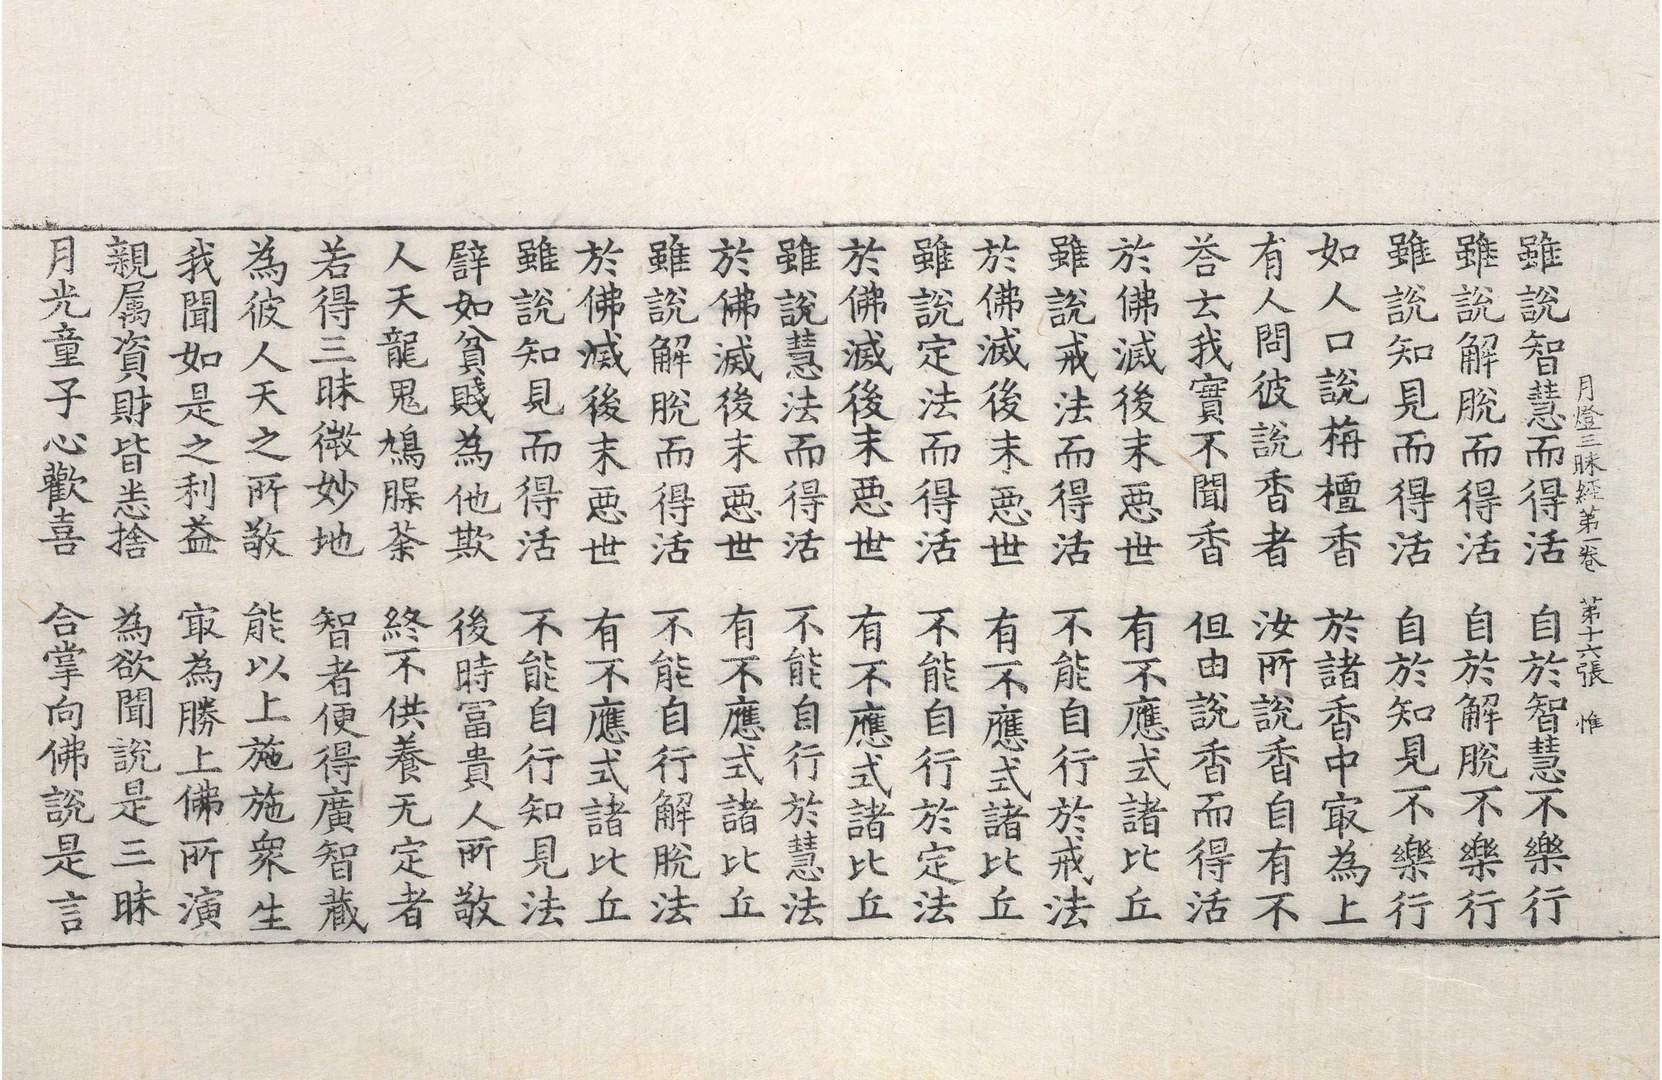 月燈三昧經第一卷　第十六張　惟
雖說智慧而得活　自於智慧不樂行
雖說解脫而得活　自於解脫不樂行
雖說知見而得活　自於知見不樂行
如人口說栴檀香　於諸香中㝡為上
有人問彼說香者　汝所說香自有不
荅言我實不聞香　但由說香而得活
於佛滅後末惡世　有不應式諸比丘
雖說戒法而得活　不能自行於戒法
於佛滅後末惡世　有不應式諸比丘
雖說定法而得活　不能自行於定法
於佛滅後末惡世　有不應式諸比丘
雖說慧法而得活　不能自行於慧法
於佛滅後末惡世　有不應式諸比丘
雖說解脫而得活　不能自行解脫法
於佛滅後末惡世　有不應式諸比丘
雖說知見而得活　不能自行知見法
譬如貧賤為他欺　後時冨貴人所敬
人天龍鬼鳩槃荼　終不供養无定者
若得三昧微妙地　智者便得廣智藏
為彼人天之所敬　能以上施施衆生
我聞如是之利益　㝡為勝上佛所演
親属資財皆悉捨　為欲聞說是三昧
月光童子心歡喜　合掌向佛說是言